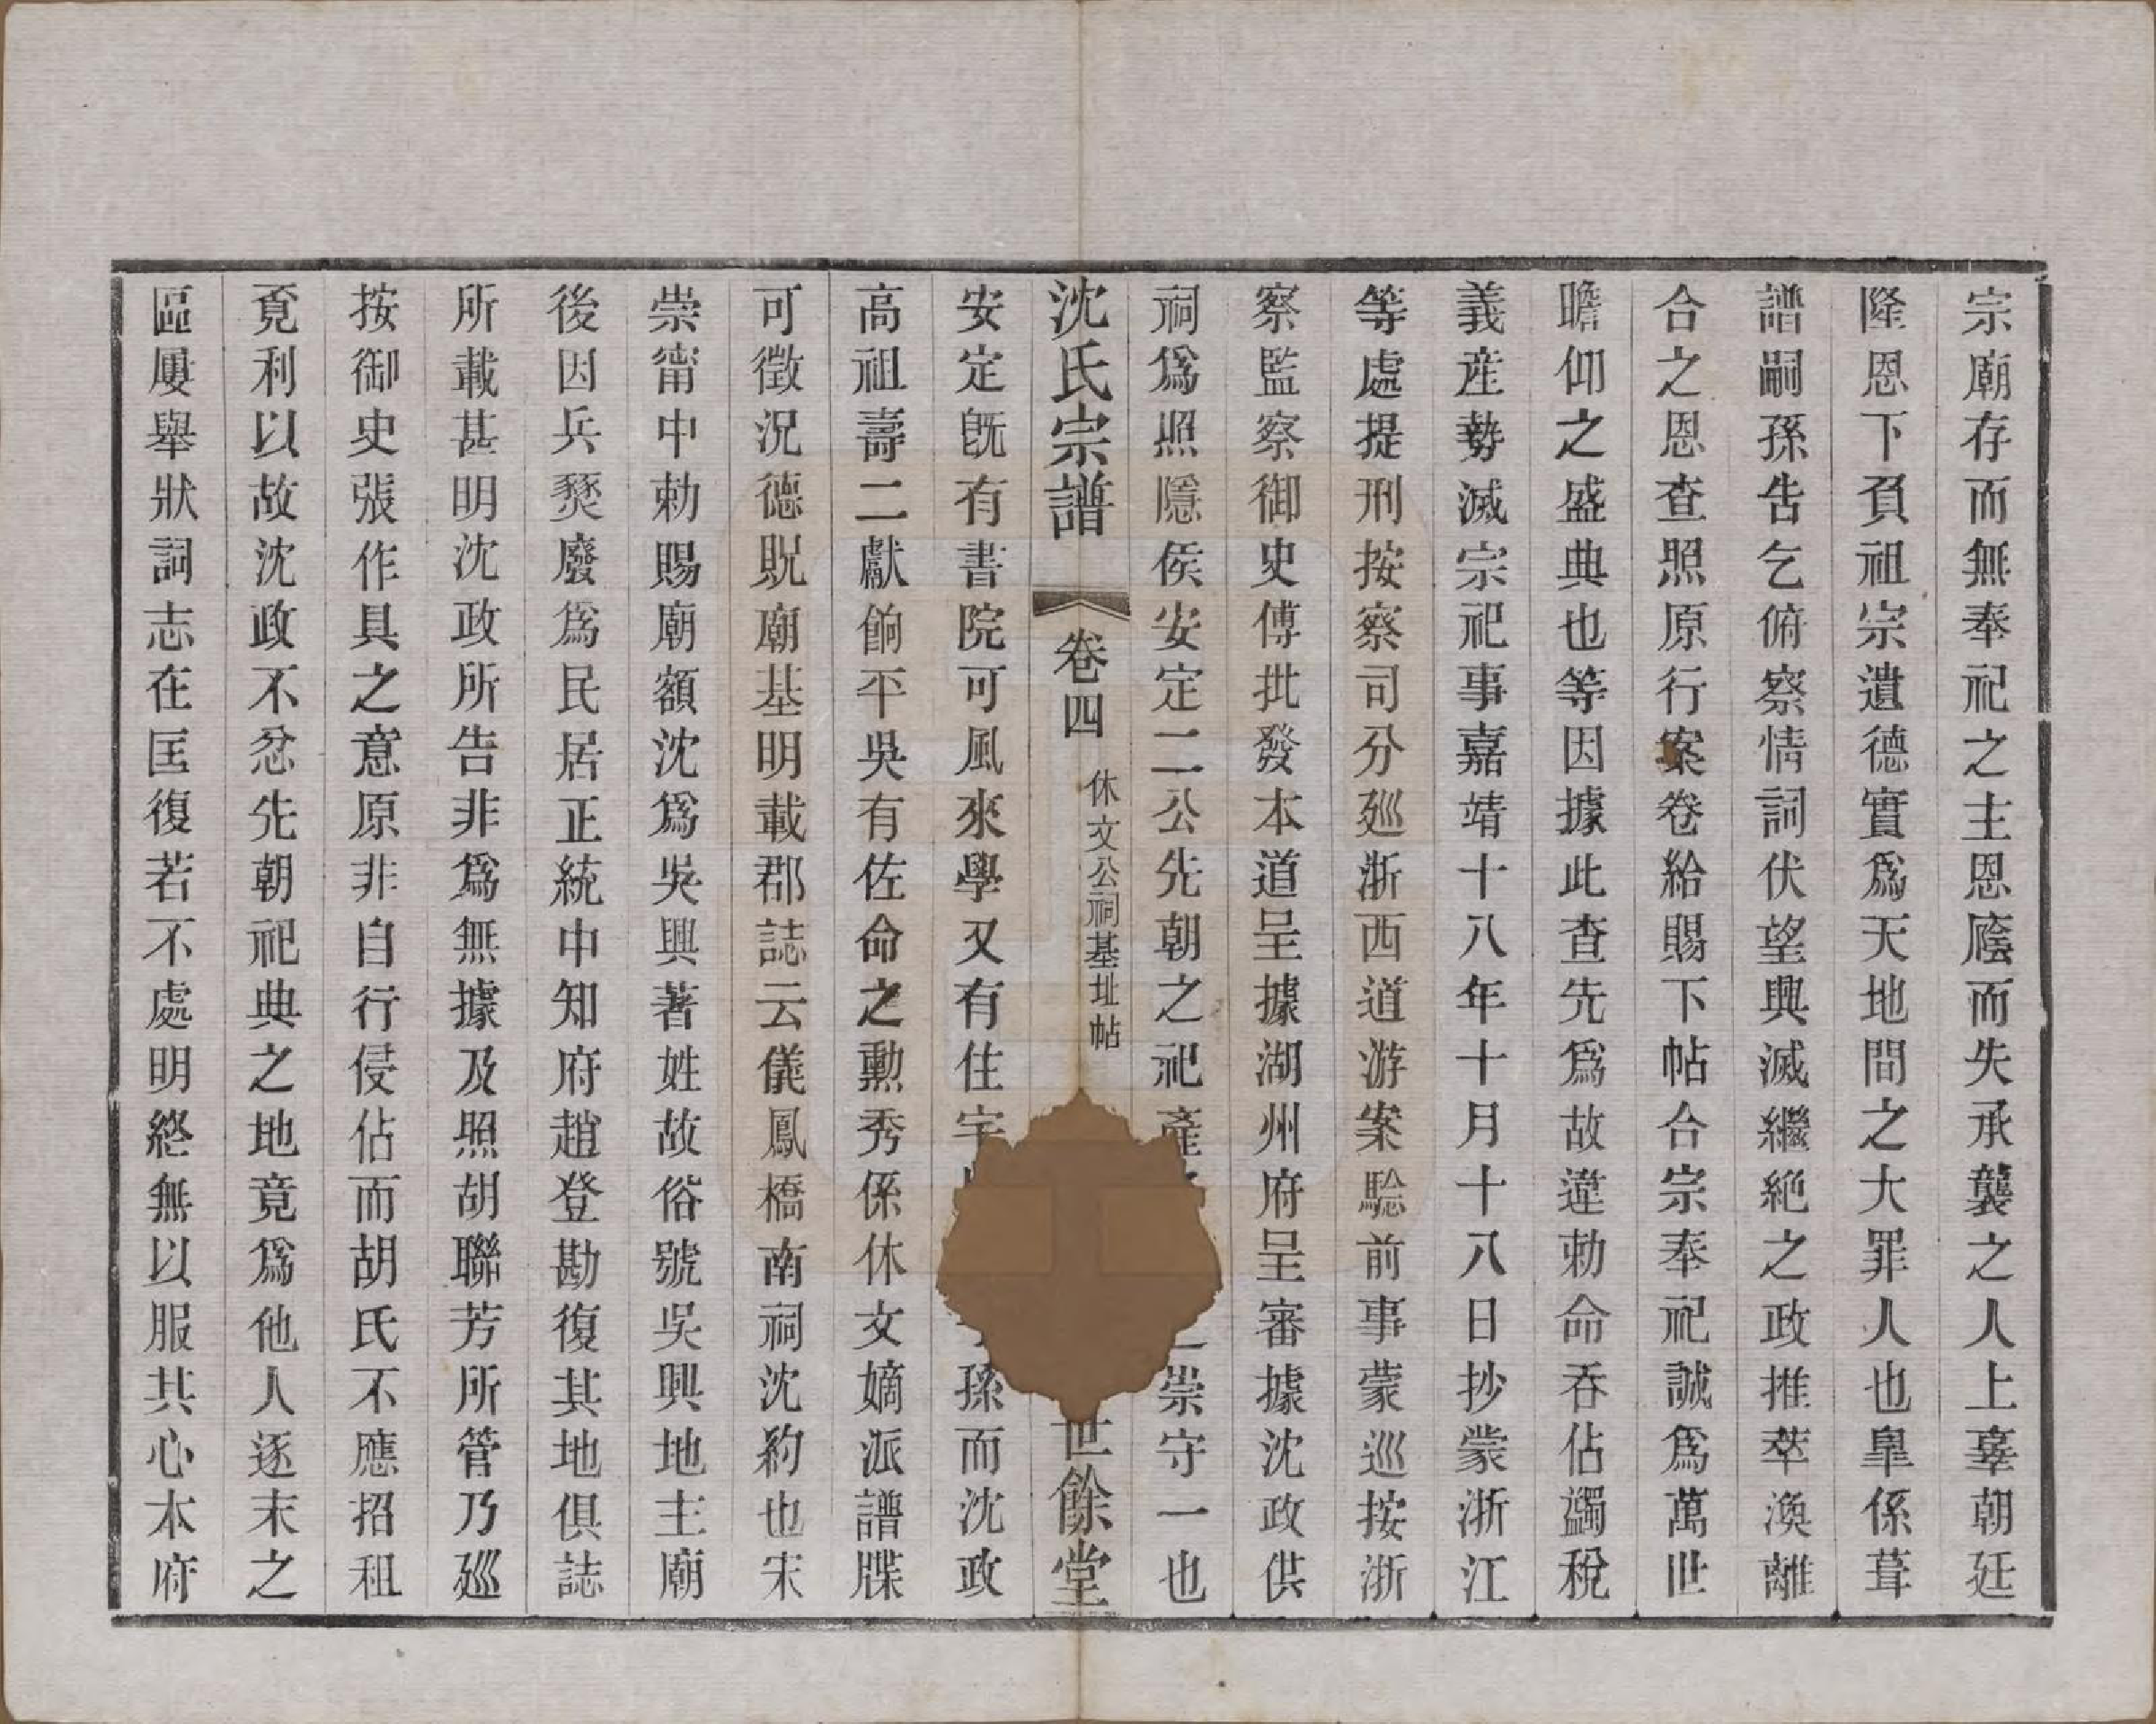 宗廟存而無奉祀之主恩廕而失承襲之人上辜朝廷
隆恩下負祖宗遺德實爲天地間之大罪人也辠係葺
譜嗣孫告乞俯察情詞伏望興滅繼絕之政推萃渙離
合之恩查照原行案卷給賜下帖合宗奉祀誠爲萬世
瞻仰之盛典也等因據此查先爲故違勅命吞佔蠲稅
義産勢滅宗祀事嘉靖十八年十月十八日抄蒙浙江
等處提刑按察司分廵浙西道游案騐前事蒙巡按浙
察監察御史傅批發本道呈據湖州府呈審據沈政供
祠爲照隱侯安定二公先朝之祀產崇守一也
沈氏宗譜 卷四 休文公祠基址帖 世餘堂
安定既有書院可風來學又有住宇孫而沈政
高祖壽二獻餉平吳有佐命之勲秀係休文嫡派譜牒
可徵況德貺廟基明載郡誌云儀鳳橋南祠沈約也宋
崇甯中勅賜廟額沈爲吳興著姓故俗號吳興地主廟
後因兵燹廢爲民居正統中知府趙登勘復其地俱誌
所載甚明沈政所告非爲無據及照胡聯芳所管乃廵
按御史張作具之意原非自行侵佔而胡氏不應招租
覔利以故沈政不忿先朝祀典之地竟爲他人逐末之
區屢舉狀詞志在匡復若不處明終無以服其心本府